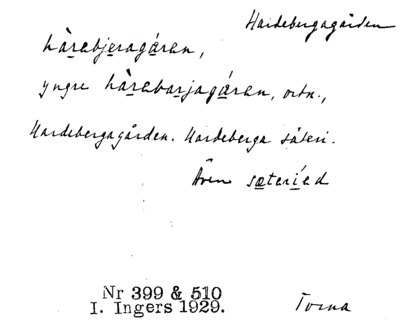 Hardebergagården
hàrabjeragáran,
yngre hàrabarjagáran, ortn.,
Hardebergagården. Hardeberga säteri.
Även sæteríed
Nr 399 & 510
I. Ingers 1929.
Torna